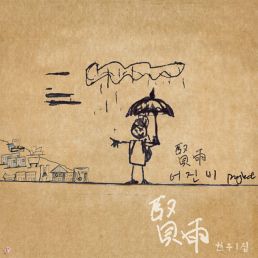 賢雨
어진비 project
賢雨
1집